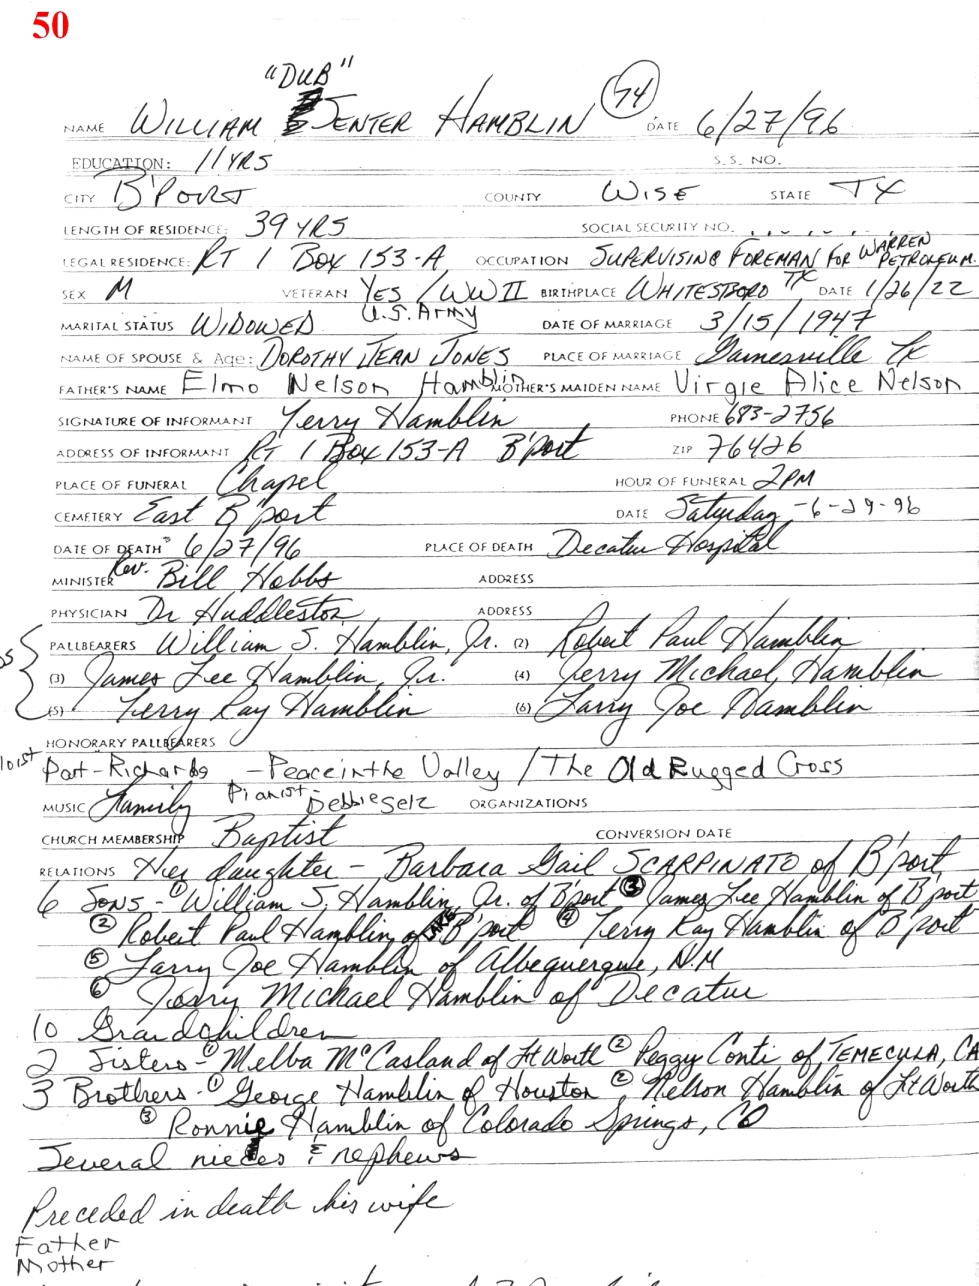 50
"DUB"
NAME WILLIAM JENTER HAMBLIN 74 DATE 6/27/96
EDUCATION: 11 YRS S.S. NO.
CITY B'PORT COUNTY WISE STATE TX
LENGTH OF RESIDENCE: 39 YRS SOCIAL SECURITY NO.
LEGAL RESIDENCE: RT 1 BOX 153-A OCCUPATION SUPERVISING FOREMAN FOR WARREN PETROLEUM.
SEX M VETERAN YES / WW II BIRTHPLACE WHITESBORO TX DATE 1/26/22
U.S. ARMY
MARITAL STATUS WIDOWED DATE OF MARRIAGE 3/15/1947
NAME OF SPOUSE & Age: DOROTHY JEAN JONES PLACE OF MARRIAGE Gainesville Tx
FATHER'S NAME Elmo Nelson Hamblin MOTHER'S MAIDEN NAME Virgie Alice Nelson
SIGNATURE OF INFORMANT Terry Hamblin PHONE 683-2756
ADDRESS OF INFORMANT RT 1 Box 153-A B'port ZIP 76426
PLACE OF FUNERAL Chapel HOUR OF FUNERAL 2PM
CEMETERY East B'port DATE Saturday -6-29-96
DATE OF DEATH 6/27/96 PLACE OF DEATH Decatur Hospital
MINISTER Rev. Bill Hobbs ADDRESS
PHYSICIAN Dr Huddleston ADDRESS
PALLBEARERS William J. Hamblin, Jr. (2) Robert Paul Hamblin
(3) James Lee Hamblin, Jr. (4) Jerry Michael Hamblin
(5) Terry Ray Hamblin (6) Larry Joe Hamblin
HONORARY PALLBEARERS
Pat-Richards - Peace in the Valley / The Old Rugged Cross
MUSIC Family Pianist - Debbie Selz ORGANIZATIONS
CHURCH MEMBERSHIP Baptist CONVERSION DATE
RELATIONS daughter - Barbara Gail SCARPINATO of B'port
6 Sons - ① William J. Hamblin, Jr. of B'port ③ James Lee Hamblin of B'port
② Robert Paul Hamblin of LAKE B'port ④ Terry Ray Hamblin of B'port
⑤ Larry Joe Hamblin of Albequerque, N.M
⑥ Jerry Michael Hamblin of Decatur
10 Grandchildren
2 Sisters - ① Melba McCasland of Ft Worth ② Peggy Conti of TEMECULA, CA
3 Brothers - ① George Hamblin of Houston ② Nelson Hamblin of Ft Worth
③ Ronnie Hamblin of Colorado Springs, CO
Several nieces & nephews
Preceded in death his wife
Father
Mother